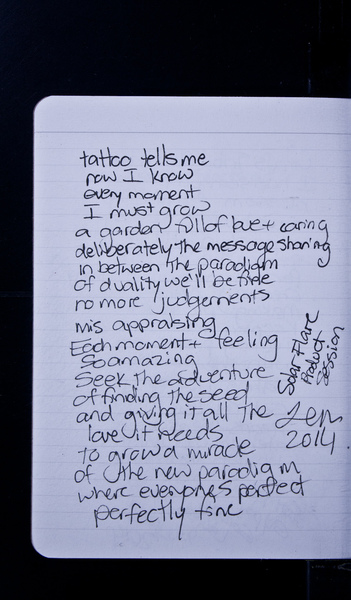 tattoo tells me
now I know
every moment
I must grow
a garden full of love + caring
deliberately the message sharing
in between the paradigm
of duality we'll be fine
no more judgements
mis appraising
Each moment + feeling
so amazing
Seek the adventure
of finding the seed
and giving it all the
love it needs
to grow a miracle
of the new paradigm
where everyone's perfect
perfectly fine
Solar Flare
Product
Session
2014